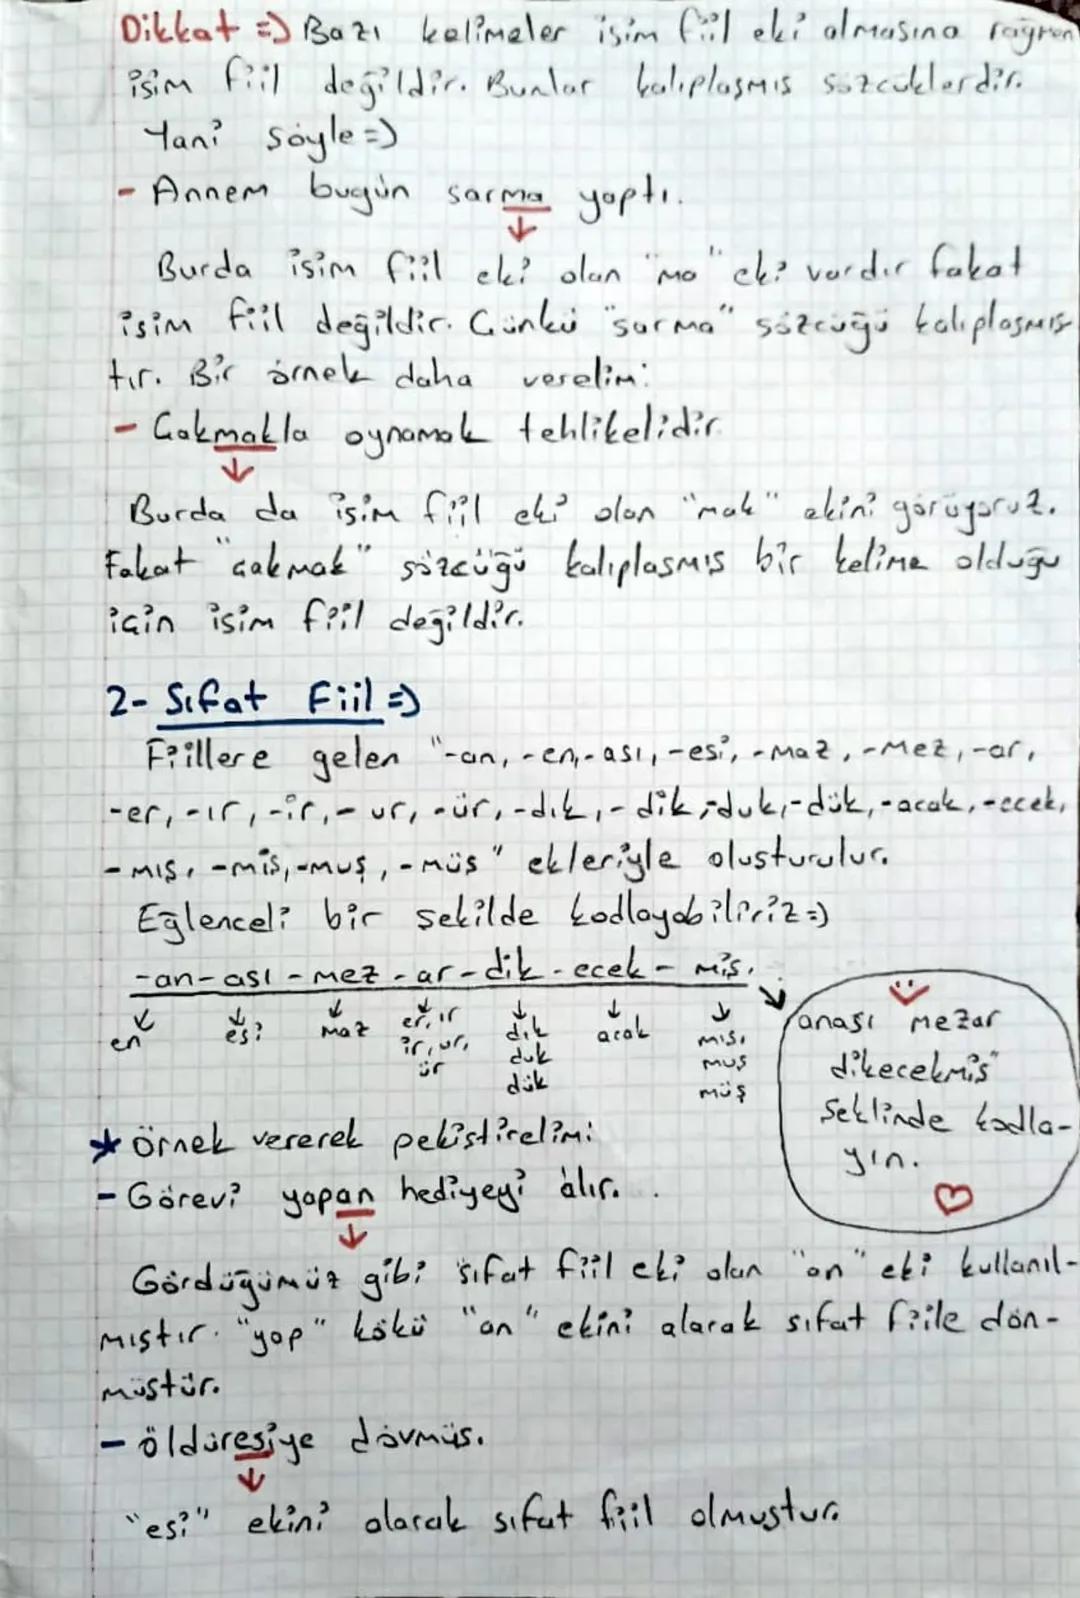 Dikkat => Bazı kelimeler isim fiil eki almasına rağmen
isim fiil değildir. Bunlar kalıplaşmış sözcüklerdir.
Yani şöyle =)
- Annem bugün sarma yaptı.
Burda isim fiil eki olan "ma" eki vardır fakat
isim fiil değildir. Çünkü "sarma" sözcüğü kalıplaşmış-
tır. Bir örnek daha verelim:
- Çakmakla oynamak tehlikelidir
Burda da isim fiil eki olan "mak" ekini görüyoruz.
Fakat "çakmak" sözcüğü kalıplaşmış bir kelime olduğu
için isim fiil değildir.
2- Sıfat Fiil =)
Fiillere gelen "-an, -en, -ası, -esi, -maz, -mez, -ar,
-er, -ır, -ir, -ur, -ür, -dık, -dik, -duk, -dük, -acak, -ecek,
-mış, -miş, -muş, -müş" ekleriyle oluşturulur.
Eğlenceli bir şekilde kodlayabiliriz =)
-an-ası-mez-ar-dik-ecek-miş.
en esi maz er, ır dık acak mış,
ir, ur, duk muş
ür dük müş
anası mezar
dikecekmiş"
şeklinde kodla-
yın.
* Örnek vererek pekiştirelim:
- Görevi yapan hediyeyi alır.
Gördüğümüz gibi sıfat fiil eki olan "an" eki kullanıl-
mıştır. "yap" kökü "an" ekini alarak sıfat fiile dön-
müştür.
- öldüresiye dövmüş.
"esi" ekini alarak sıfat fiil olmuştur.